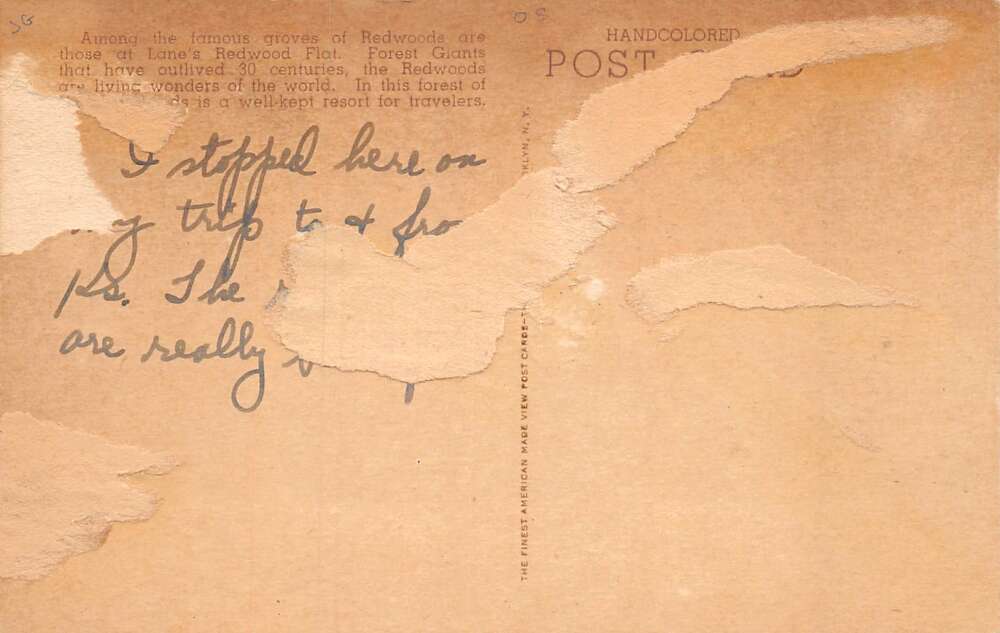 JG
Among the famous groves of Redwoods are
those at Lane's Redwood Flat. Forest Giants
that have outlived 30 centuries, the Redwoods
are living wonders of the world. In this forest of
is a well-kept resort for travelers.
I stopped here on
trip to & fro
The
are really
HANDCOLORED
POST
KLYN, N. Y.
THE FINEST AMERICAN MADE VIEW POST CARDS—